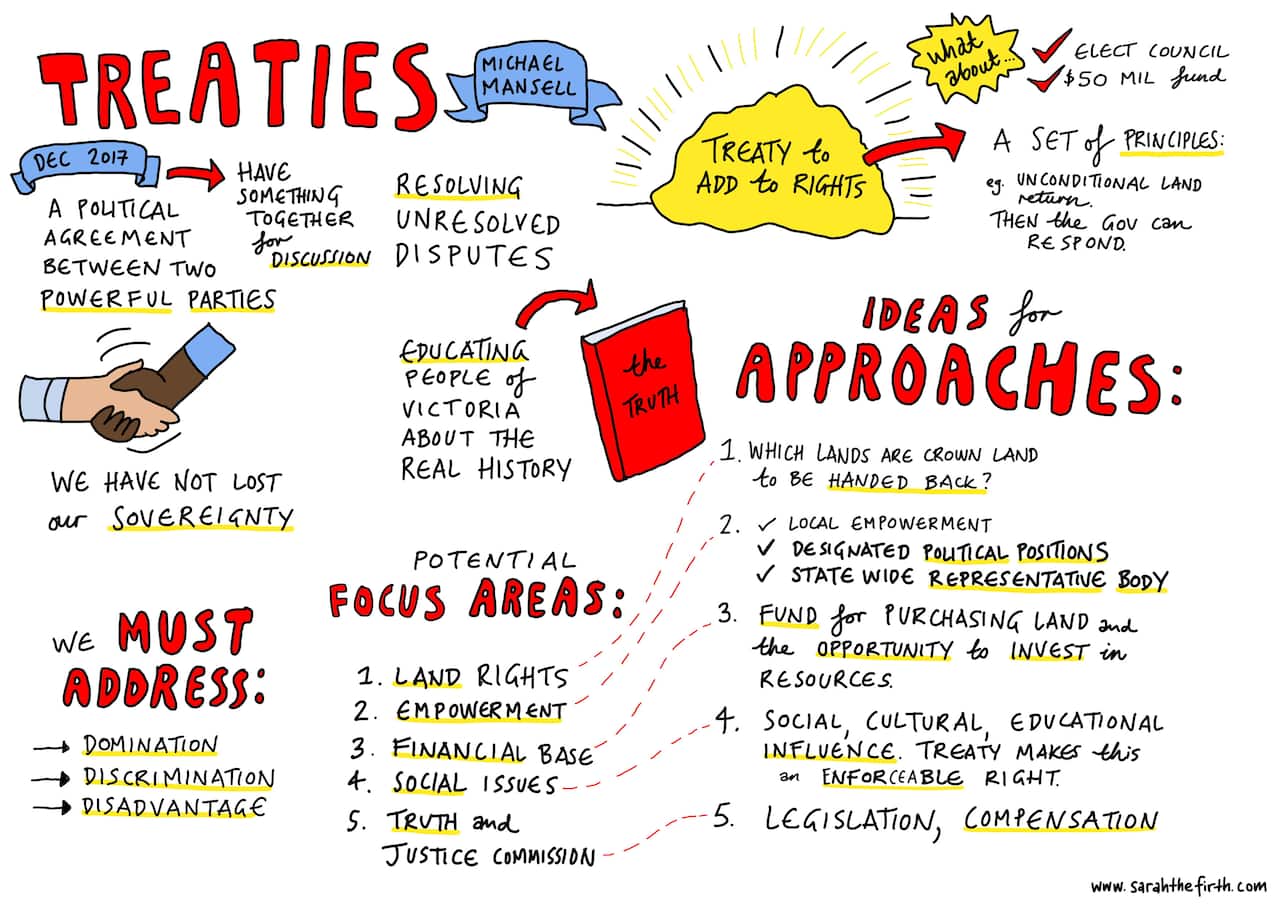 TREATIES
MICHAEL
MANSELL
DEC 2017
HAVE
SOMETHING
TOGETHER
for
DISCUSSION
A POLITICAL
AGREEMENT
BETWEEN TWO
POWERFUL PARTIES
RESOLVING
UNRESOLVED
DISPUTES
TREATY to
ADD to RIGHTS
What
about...
ELECT COUNCIL
$50 MIL fund
A SET of PRINCIPLES:
eg. UNCONDITIONAL LAND
return.
THEN the GOV can
RESPOND.
WE HAVE NOT LOST
our SOVEREIGNTY
EDUCATING
PEOPLE of
VICTORIA
ABOUT THE
REAL HISTORY
the
TRUTH
WE MUST
ADDRESS:
DOMINATION
DISCRIMINATION
DISADVANTAGE
POTENTIAL
FOCUS AREAS:
1. LAND RIGHTS
2. EMPOWERMENT
3. FINANCIAL BASE
4. SOCIAL ISSUES
5. TRUTH and
JUSTICE COMMISSION
IDEAS for
APPROACHES:
1. WHICH LANDS ARE CROWN LAND
to BE HANDED BACK?
2. ✓ LOCAL EMPOWERMENT
✓ DESIGNATED POLITICAL POSITIONS
✓ STATE WIDE REPRESENTATIVE BODY
3. FUND for PURCHASING LAND and
the OPPORTUNITY to INVEST in
RESOURCES.
4. SOCIAL, CULTURAL, EDUCATIONAL
INFLUENCE. TREATY MAKES this
an ENFORCEABLE RIGHT.
5. LEGISLATION, COMPENSATION
www.sarahthefirth.com